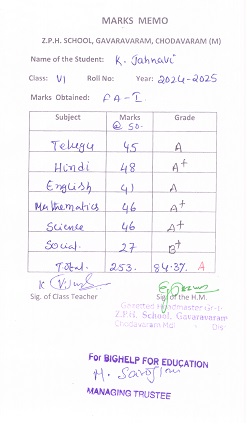 MARKS MEMO
Z.P.H. SCHOOL, GAVARAVARAM, CHODAVARAM (M)
Name of the Student: K. Jahnavi
Class: VI Roll No: Year: 2024-2025
Marks Obtained: FA-I
Subject Marks @ 50. Grade
Telugu 45 A
Hindi 48 A+
English 41 A
Mathematics 46 A+
Science 46 A+
Social. 27 B+
Total. 253. 84.37. A
Sig. of Class Teacher Sig. of the H.M.
Gazetted Headmaster Gr-I
Z.P.H. School, Gavaravaram
Chodavaram Mdl Dis
For BIGHELP FOR EDUCATION
MANAGING TRUSTEE